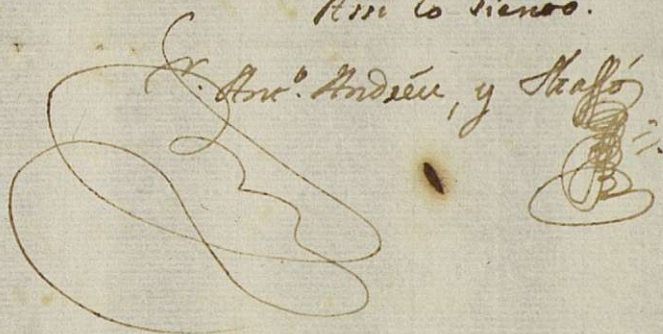 Assi lo siento.
D. Antº. Andréu, y